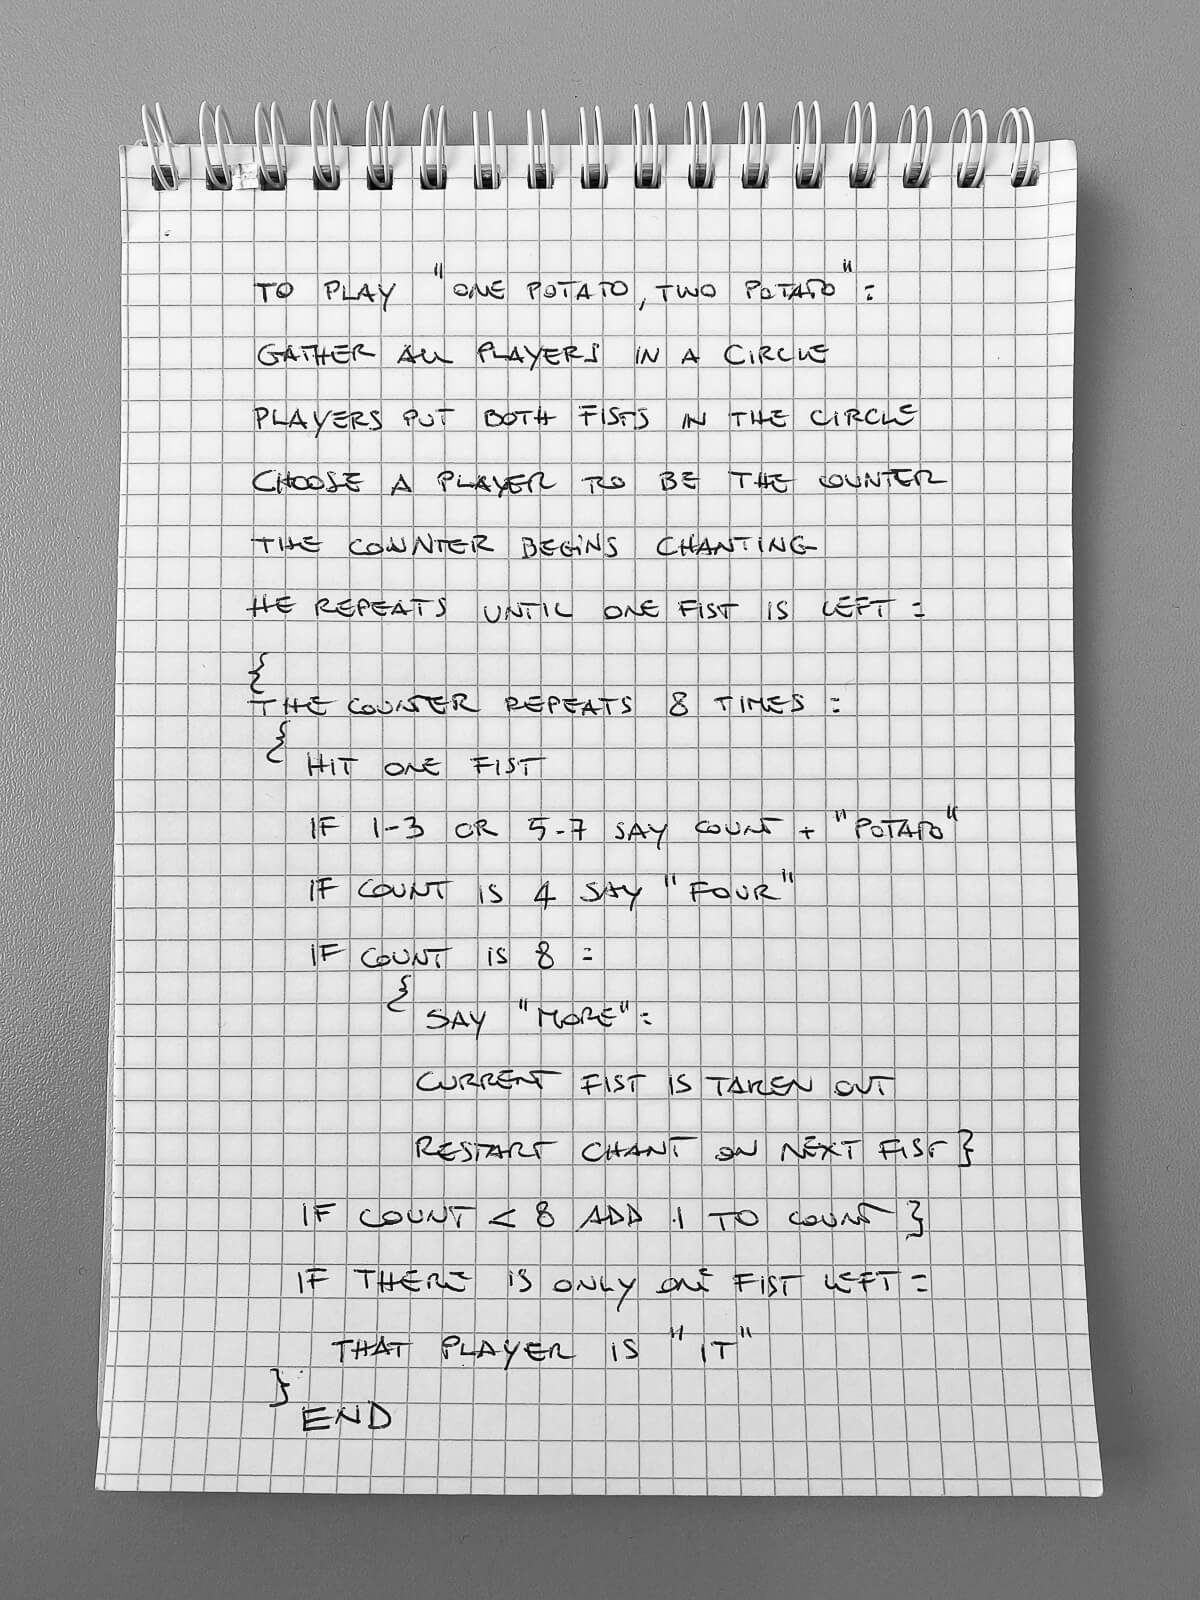 TO PLAY "ONE POTATO, TWO POTATO":
GATHER ALL PLAYERS IN A CIRCLE
PLAYERS PUT BOTH FISTS IN THE CIRCLE
CHOOSE A PLAYER TO BE THE COUNTER
THE COUNTER BEGINS CHANTING
HE REPEATS UNTIL ONE FIST IS LEFT:
{
THE COUNTER REPEATS 8 TIMES:
{
HIT ONE FIST
IF 1-3 OR 5-7 SAY COUNT + "POTATO"
IF COUNT IS 4 SAY "FOUR"
IF COUNT IS 8:
{
SAY "MORE":
CURRENT FIST IS TAKEN OUT
RESTART CHANT ON NEXT FIST}
IF COUNT < 8 ADD 1 TO COUNT}
IF THERE IS ONLY ONE FIST LEFT:
THAT PLAYER IS "IT"
}
END